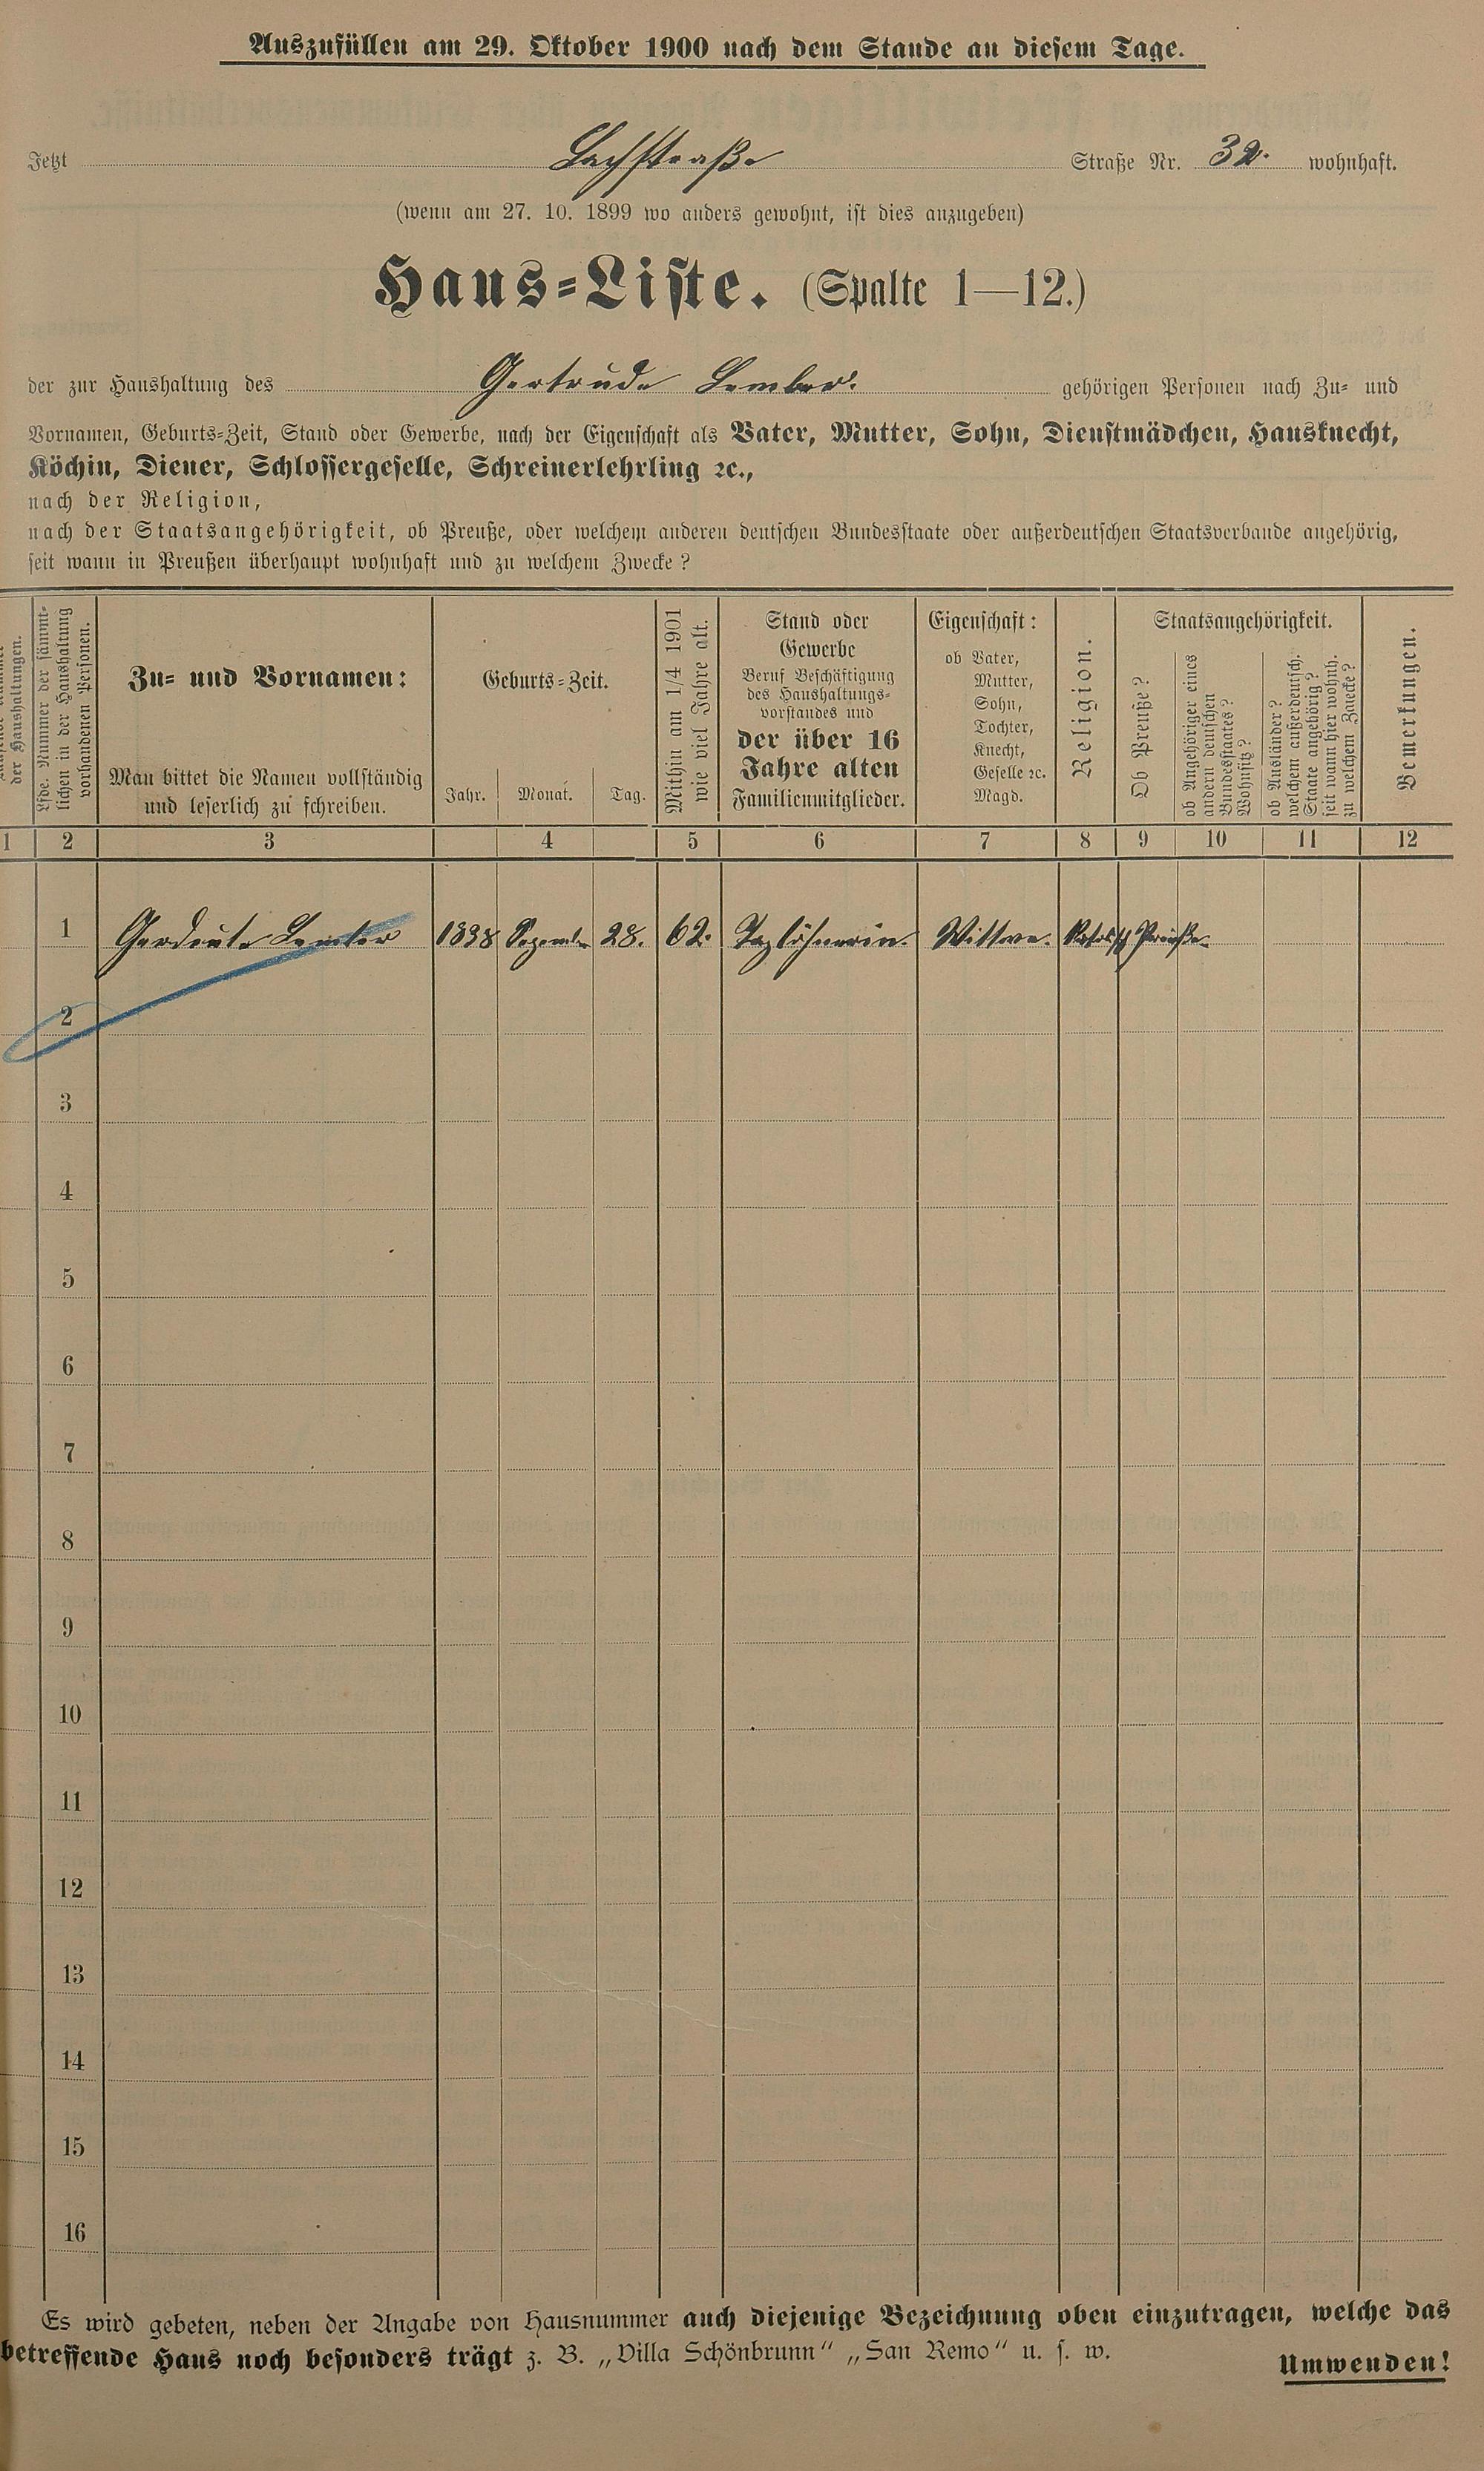 Auszufüllen am 29. Oktober 1900 nach dem Stande an diesem Tage.
Jetzt Bachstraße Straße Nr. 32. wohnhaft.
(wenn am 27. 10. 1899 wo anders gewohnt, ist dies anzugeben)
Haus=Liste. (Spalte 1—12.)
der zur Haushaltung des Gertrude gehörigen Personen nach Zu= und
Vornamen, Geburts=Zeit, Stand oder Gewerbe, nach der Eigenschaft als Vater, Mutter, Sohn, Dienstmädchen, Hausknecht,
Köchin, Diener, Schlossergeselle, Schreinerlehrling ꝛc.,
nach der Religion,
nach der Staatsangehörigkeit, ob Preuße, oder welchem anderen deutschen Bundesstaate oder außerdeutschen Staatsverbande angehörig,
seit wann in Preußen überhaupt wohnhaft und zu welchem Zwecke?
der Haushaltungen.
Lfde. Nummer der sämmt=
lichen in der Haushaltung
vorhandenen Personen.
Zu= und Vornamen:
Man bittet die Namen vollständig
und leserlich zu schreiben.
Geburts=Zeit.
Jahr. Monat. Tag.
Mithin am 1/4 1901
wie viel Jahre alt.
Stand oder
Gewerbe
Beruf Beschäftigung
des Haushaltungs=
vorstandes und
der über 16
Jahre alten
Familienmitglieder.
Eigenschaft:
ob Vater,
Mutter,
Sohn,
Tochter,
Knecht,
Geselle ꝛc.
Magd.
Religion.
Staatsangehörigkeit.
Ob Preuße?
ob Angehöriger eines
andern deutschen
Bundesstaates?
Wohnsitz?
ob Ausländer?
welchem außerdeutsch.
Staate angehörig?
seit wann hier wohnh.
zu welchem Zwecke?
Bemerkungen.
1 2 3 4 5 6 7 8 9 10 11 12
1 1838 Dezember 28. 62. Taglöhnerin. Wittwe. Katolisch Preuße.
2
3
4
5
6
7
8
9
10
11
12
13
14
15
16
Es wird gebeten, neben der Angabe von Hausnummer auch diejenige Bezeichnung oben einzutragen, welche das
betreffende Haus noch besonders trägt z. B. „Villa Schönbrunn" „San Remo" u. s. w.
Umwenden!